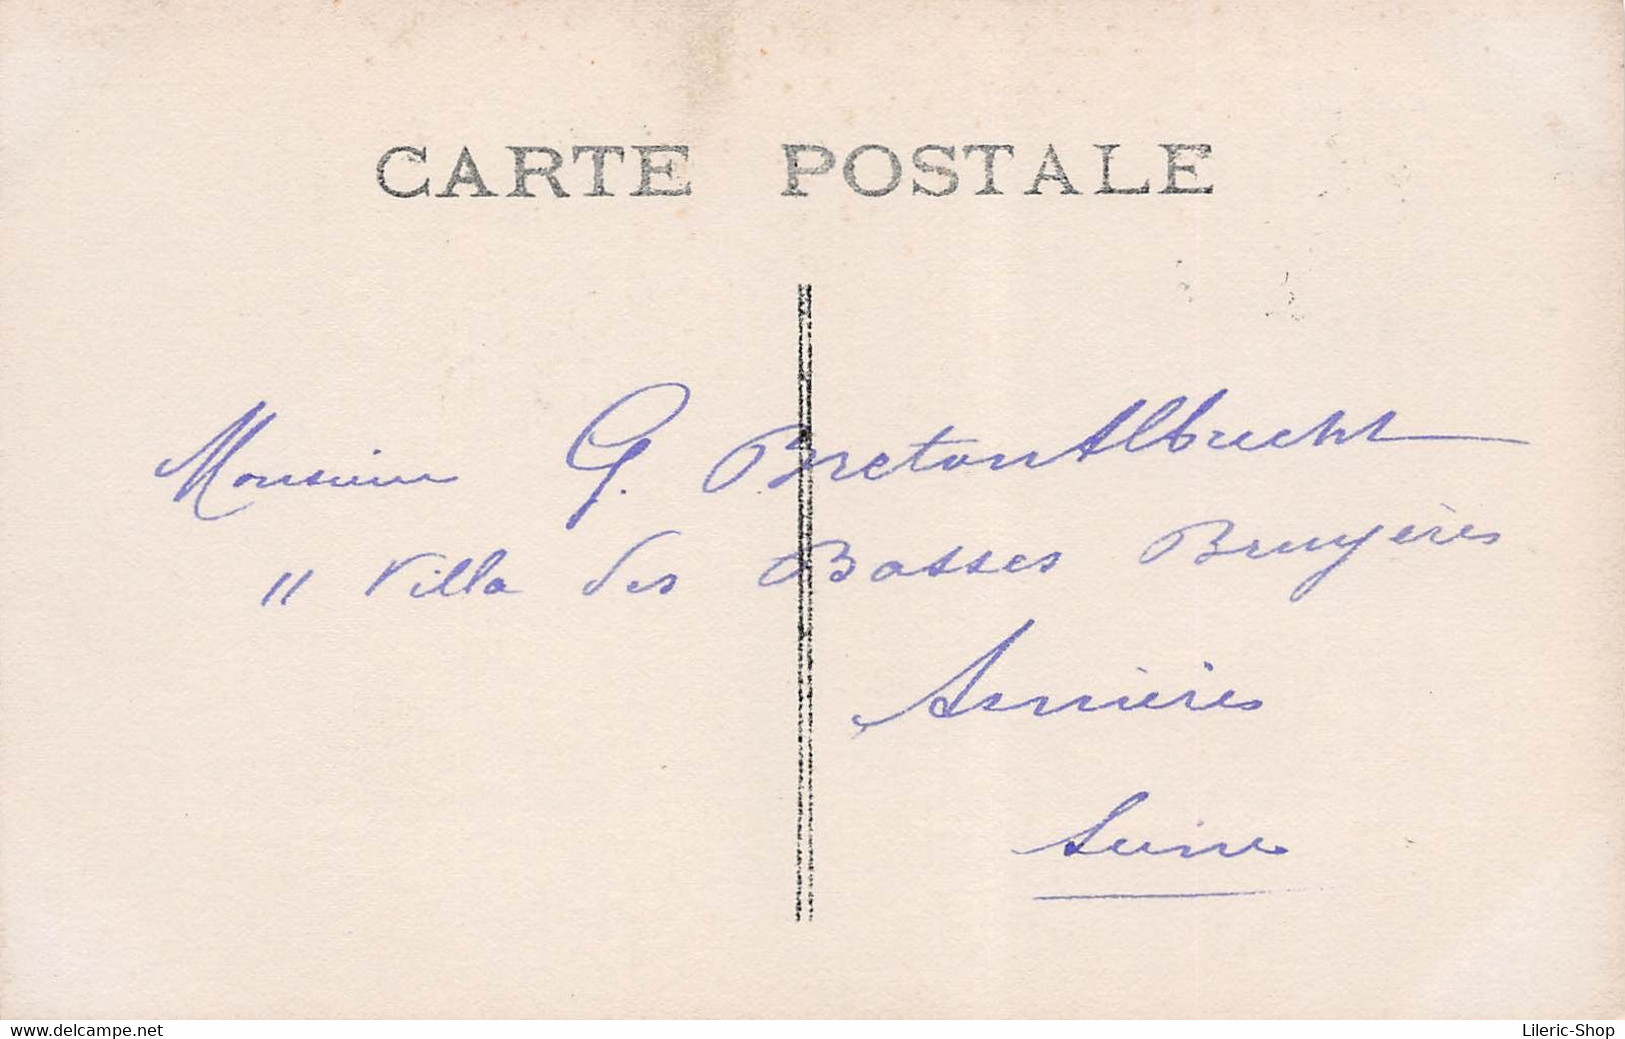 CARTE POSTALE
Monsieur G. Breton Albrecht
11 Villa des Basses Bruyères
Asnières
Seine
www.delcampe.net
Lileric-Shop